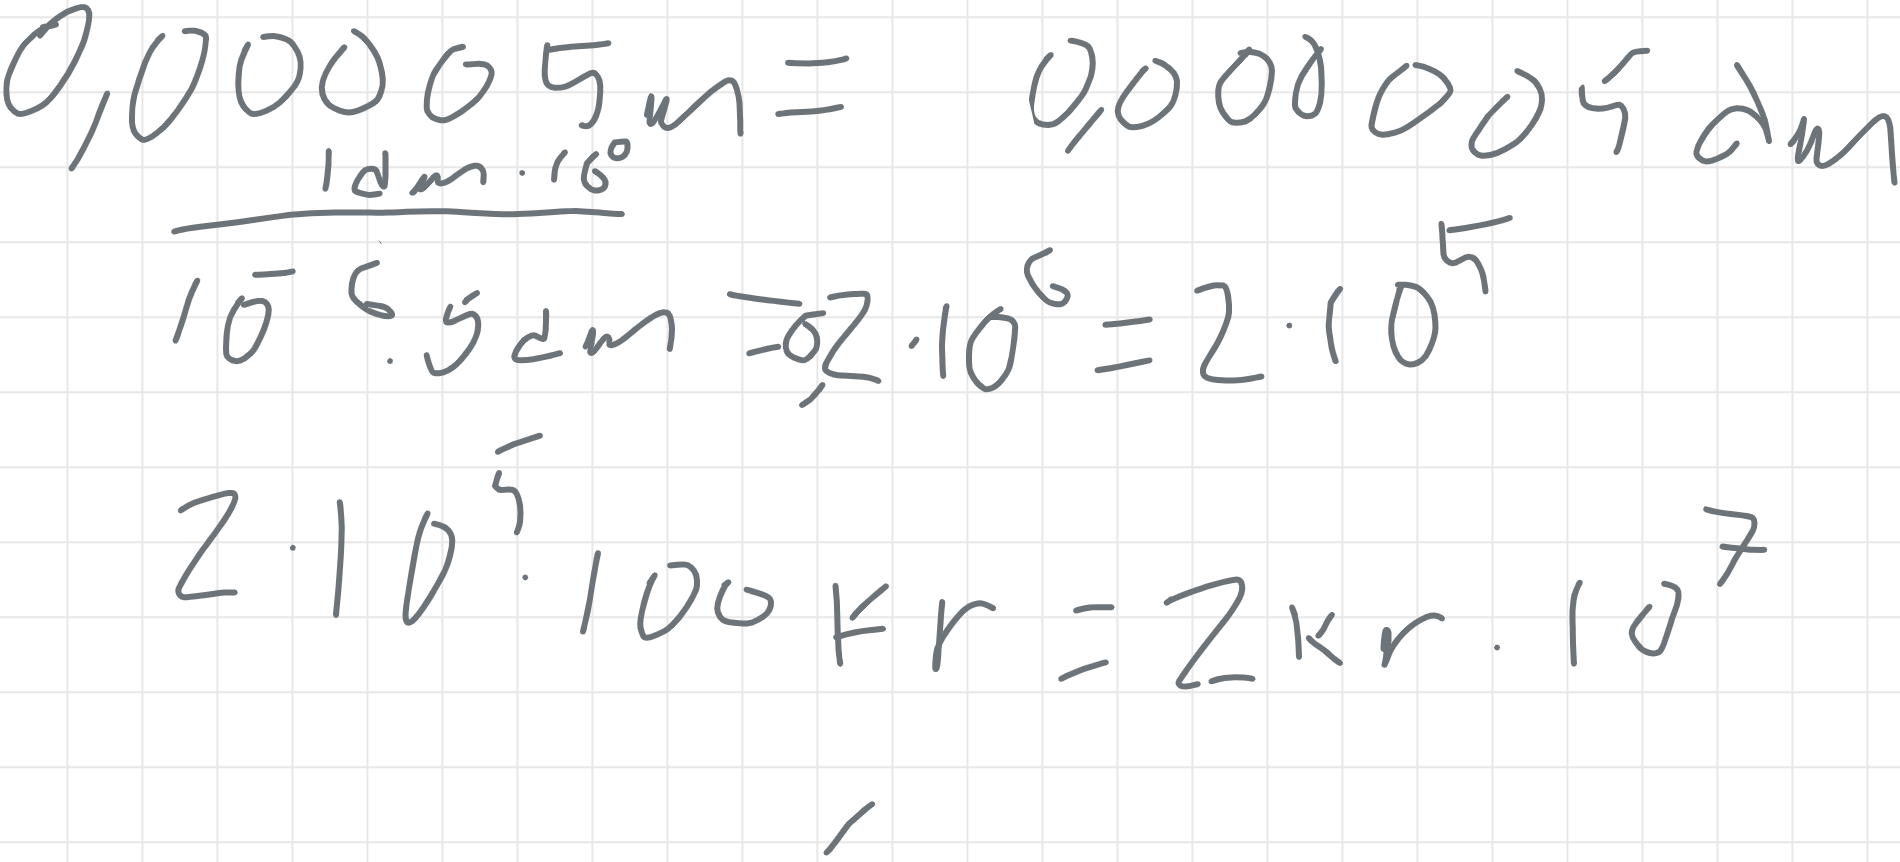 0,00005m = 0,000005dm
1dm · 10⁰
10⁻⁶ · 5dm = 0,2 · 10⁶ = 2 · 10⁵
2 · 10⁵ · 100kr = 2kr · 10⁷